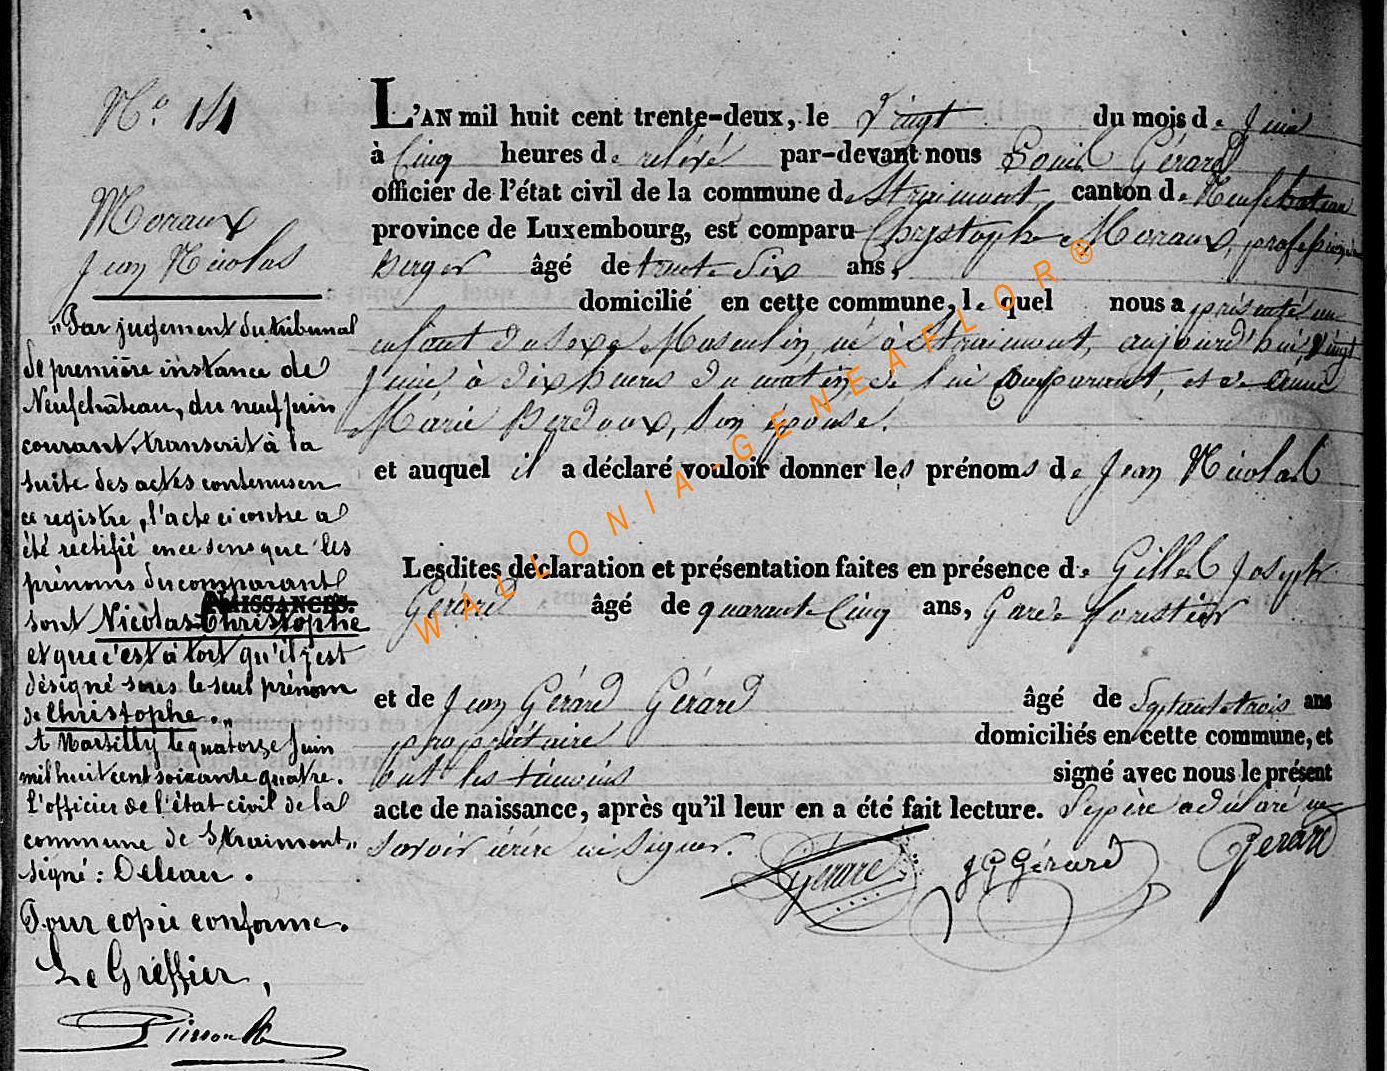 N° 14
Moraux
Jean Nicolas
"Par jugement du tribunal
de première instance de
Neufchâteau, du neuf juin
courant, transcrit à la
suite des actes contenus en
ce registre, l'acte ci contre a
été rectifié en ce sens que les
prénoms du comparant
NAISSANCES.
sont Nicolas-Christophe
et que c'est à tort qu'il y est
désigné sous le seul prénom
de Christophe."
A Martilly le quatorze juin
mil huit cent soixante quatre.
L'officier de l'état civil de la
commune de Straimont"
signé:
Pour copie conforme.
Le Greffier,
L'AN mil huit cent trente-deux, le Vingt du mois de Juin
à Cinq heures de relevé par-devant nous Louis Gérard
officier de l'état civil de la commune de Straimont, canton de Neufchateau
province de Luxembourg, est comparu Chrystophe Moraux, profession de
Berger âgé de trente Six ans,
domicilié en cette commune, le quel nous a présenté un
enfant du sexe Masculin, né à Straimont, aujourd'hui, vingt
Juin à dix heures du matin, de lui Comparant, et de Anne
Marie, Son épouse.
et auquel il a déclaré vouloir donner les prénoms de Jean Nicolas
Lesdites déclaration et présentation faites en présence de Gilles Joseph
Gérard âgé de quarante Cinq ans, Garde forestier
et de Jean Gérard Gérard âgé de Septante trois ans
propriétaire domiciliés en cette commune, et
ont les témoins signé avec nous le présent
acte de naissance, après qu'il leur en a été fait lecture. Le père a déclaré ne
savoir écrire ni Signer.
Gérard JG Gérard Gerard
WALLONIA-GENEAFLOR®